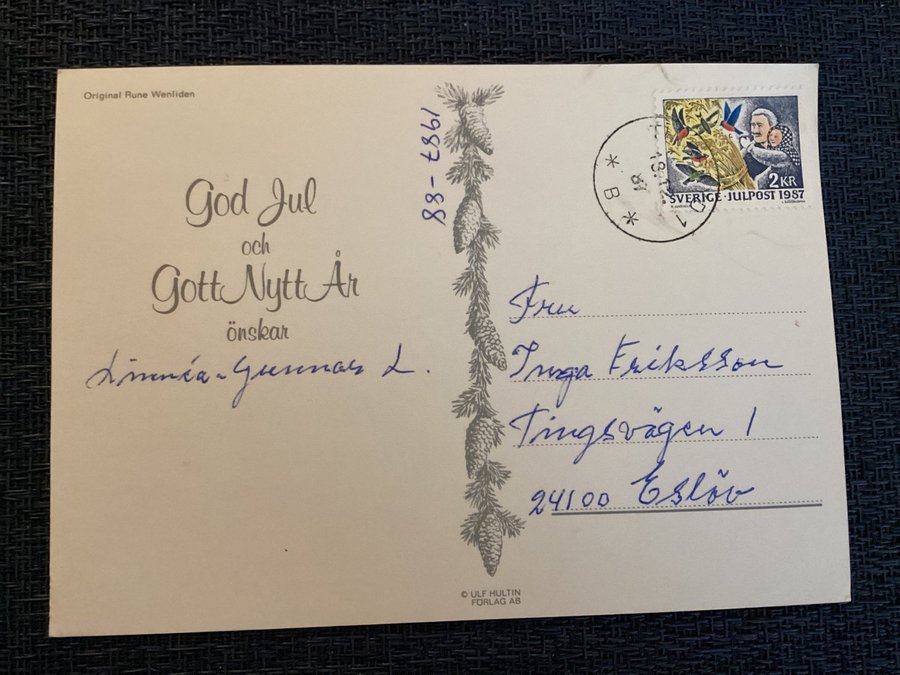 Original Rune Wenliden
God Jul
och
Gott Nytt År
önskar
Linnéa - Gunnar L.
1987-88
© ULF HULTIN
FÖRLAG AB
2 KR
SVERIGE·JULPOST 1987
* B *
Fru
Inga Eriksson
Tingsvägen 1
24100 Eslöv